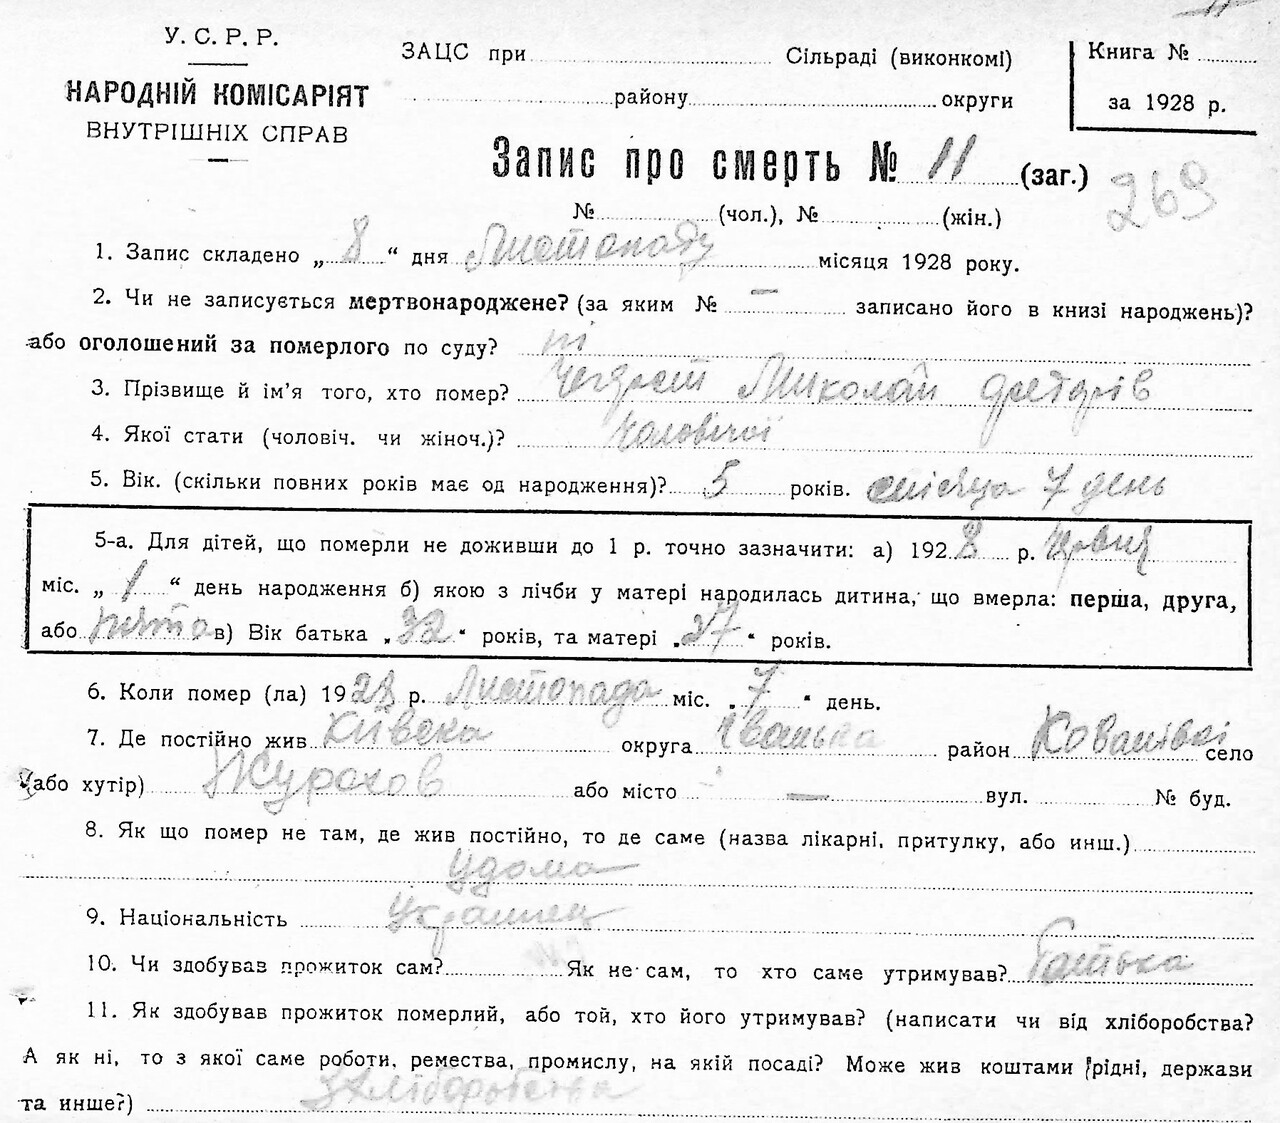 У. С. Р. Р.
НАРОДНІЙ КОМІСАРІЯТ
ВНУТРІШНІХ СПРАВ
ЗАЦС при Сільраді (виконкомі)
району округи
Книга №
за 1928 р.
Запис про смерть № 11 (заг.)
269
№ (чол.), № (жін.)
1. Запис складено „ 8 “ дня Листопаду місяця 1928 року.
2. Чи не записується мертвонароджене? (за яким № — записано його в книзі народжень)?
або оголошений за померлого по суду? ні
3. Прізвище й ім’я того, хто помер? Миколай
4. Якої стати (чоловіч. чи жіноч.)? Чоловічої
5. Вік. (скільки повних років має од народження)? 5 років. місяца 7 день
5-а. Для дітей, що померли не доживши до 1 р. точно зазначити: а) 1928 р.
міс. „ 1 “ день народження б) якою з лічби у матері народилась дитина, що вмерла: перша, друга,
або пята в) Вік батька „ 32 “ років, та матері „ 27 “ років.
6. Коли помер (ла) 1928 р. Листопада міс. „ 7 “ день.
7. Де постійно жив Київска округа Іванька район село
(або хутір) або місто — вул. № буд.
8. Як що помер не там, де жив постійно, то де саме (назва лікарні, притулку, або инш.)
удома
9. Національність Украінец
10. Чи здобував прожиток сам? Як не сам, то хто саме утримував? Батька
11. Як здобував прожиток померлий, або той, хто його утримував? (написати чи від хліборобства?
А як ні, то з якої саме роботи, ремества, промислу, на якій посаді? Може жив коштами рідні, держави
та инше?) З хліборобства